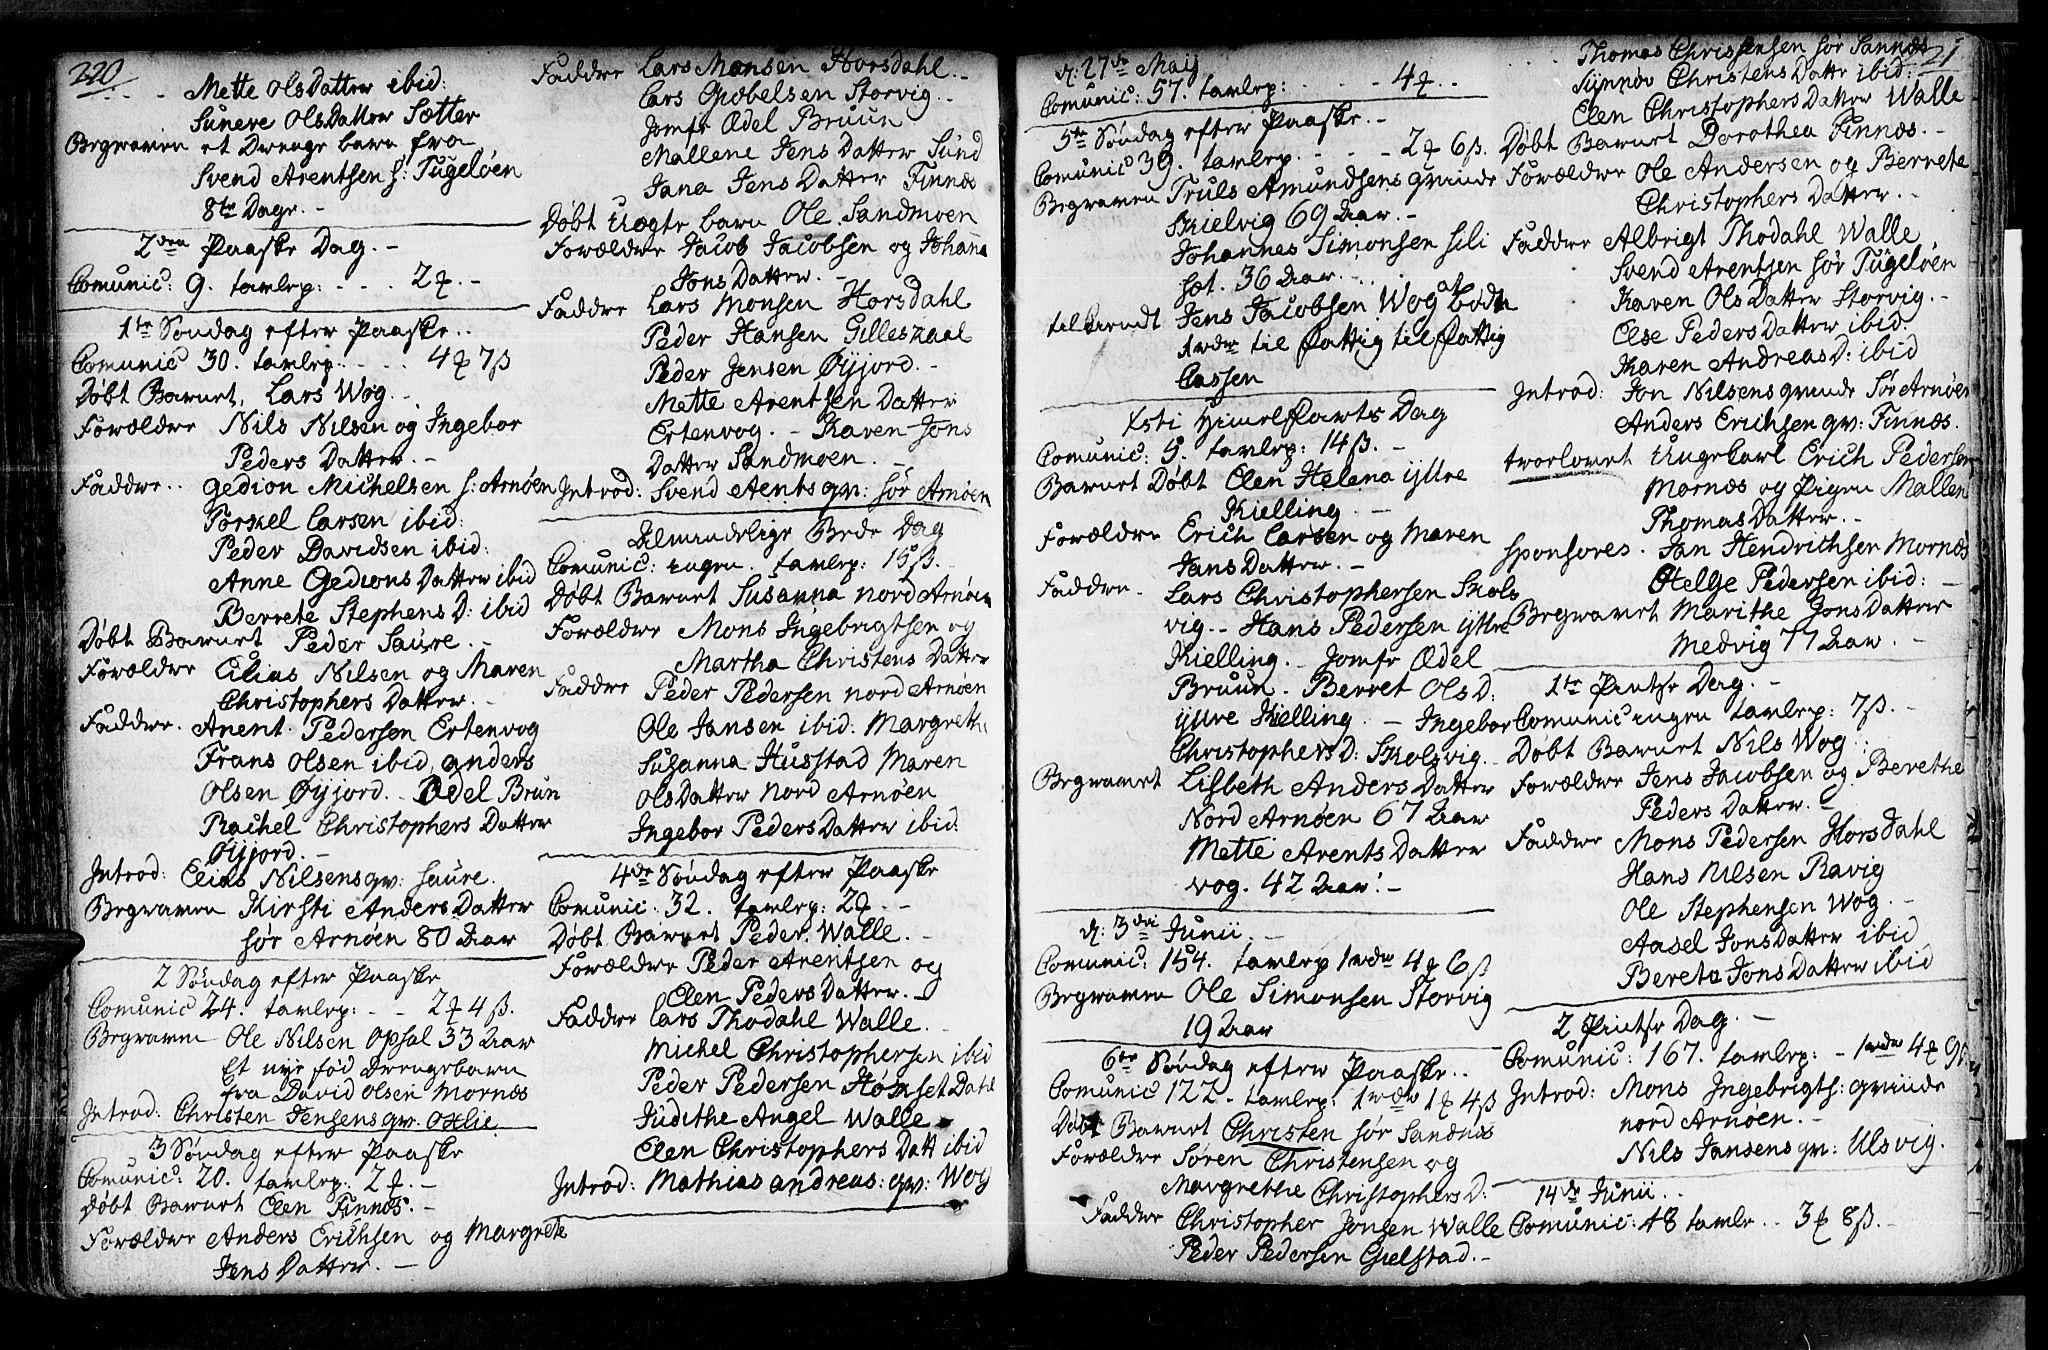 220
Mette Ols Datter ibid:
Sunere Ols Datter Sætter
Begraven et Drenge barn fra
Svend Arentsen s: Fugeløen
8te Dage. -
2den Paaske Dag. -
Comunic: 9. tavlep: - - - 2 -
1te Søndag efter Paaske..
Comunic 30. tavlep: - - - 4 7 ß
Døbt Barnet, Lars Wog. -
Forældre Nils Nilsen og Ingebor
Peders Datter. -
Faddre.. Gedion Michelsen s: Arnøen
Torkel Larsen ibid:
Peder Davidsen ibid:
Anne Gedions Datter ibid
Berrete Stephens D: ibid
Døbt Barnet Peder Saure. -
Forældre Elias Nilsen og Maren
Christophers Datter. -
Faddre. Anent Pedersen Ertenvog
Frans Olsen ibid, anders
Olsen Øyjord. - Odel Brun
Rachel Christophers Datter
Øyjord. -
Introd: Elias Nilsens qv: Saure.
Begraven Kirsti Anders Datter
sør Arnøen 80 Aar
2 Søndag efter Paaske
Comunic 24. tavlep: - - 2 4 ß.
Begraven Ole Nilsen Opsal 33 Aar
Et nye fød Drengebarn
fra David Olsen Mornæs
Introd: Christen Jensens qv. Oxlie
3 Søndag efter Paaske
Comunic: 20. tavlep: 2 -
Døbt Barnet Elen Finnæs. -
Forældre Anders Erichsen og Margrete
Jens Datter. -
Faddre Lars Monsen Horsdahl. -
Lars Gabelsen Storvig. -
Jomfr Ædel Bruun
Mallene Jens Datter Sund
Jana Jens Datter Finnæs
Døbt Uægte barn Ole Sandmoen
Forældre Jacob Jacobsen og Johana
Jons Datter. -
Faddre Lars Monsen Horsdahl
Peder Hansen Gilleskaal
Peder Jensen Øyjord. -
Mette Arentsen Datter
Ertenvog. - Karen Jons
Datter Sandmoen. -
Introd: Svend Aents qv: sør Arnøen
Almindelige Bede Dag
Comunic: ingen. tavlep: 15 ß. -
Døbt Barnet Susanna nord Arnøen
Forældre Mons Ingebrigtsen og
Martha Christens Datter
Faddre Peder Pedersen nord Arnøen
Ole Jansen ibid: Margreth
Susanna Husstad Maren
Ols Datter Nord Arnøen
Ingebor Peders Datter ibid:
4de Søndag efter Paaske
Comunic: 32. tavlep: 2 -
Døbt Barnet Peder Walle. -
Forældre Peder Arentsen og
Elen Peders Datter. -
Faddre Lars Thodahl Walle. -
Michel Christophersen ibid
Peder Pedersen Homset Dahl
Judithe Angel Walle
Elen Christophers Datt ibid
Introd: Mathias andreas: qv: Wog
d: 27de Maij
Comunic: 57. tavlep: - - - 4 - -
5te Søndag efter Paaske. -
Comunic 39. tavlep. - - - 2 6 ß.
Begraven Truls Amundsens qvinde
Skielvig 69 Aar. -
Johannes Simonsen Seli
Sæt. 36 Aar. -
tilkiendt Jens Jacobsen Wog at bøde
1 rdr til Fattig til Fattig
Cassen
Xsti Himelfarts Dag
Comunic: 5. tavlep: 14 ß. -
Barnet Døbt Elen Helena ÿttre
Kielling. -
Forældre Erich Larsen og Maren
Jans Datter. -
Faddre. Lars Christophersen Skols
vig. - Hans Pedersen ÿttre
Kielling. - Jomfr Ædel
Bruun. - Berret Ols D:
ÿttre Kielling. - Ingebor
Christophers D: Skolsvig. -
Begravet Lisbeth Anders Datter
Nord Arnøen 67 Aar
Mette Arents Datter
vog. 42 Aar. -
d: 3die Junii. -
Comunic: 154. tavlep 1 rdr 4 6 ß
Begraven Ole Simonsen Storvig
19 Aar
6te Søndag efter Paaske..
Comunic 122. tavlep: 1 rdr 1 4 ß
Døbt Barnet Christen sør Sandnæs
Forældre Søren Christensen og
Margrethe Christophers D:
Faddre Christopher Jonsen Walle
Peder Pedersen Gielstad. -
221
Thomas Christensen sør Sannæs
Synnøv Christens Datter ibid:
Elen Christophers Datter Walle
Døbt Barnet Dorothea Finnæs. -
Forældre Ole Andersen og Berrete
Christophers Datter. -
Faddre Albrigt Thodahl Walle
Svend Arentsen sør Fugeløen
Karen Ols Datter Storvig. -
Else Peders Datter ibid:
Karen Andreas D: ibid
Introd: Jon Nilsens qvinde Sør Arnøen
Anders Erichsen qv: Finnæs.
trolovet Ungekarl Erich Pedersen
Mornæs og Pigen Mallen
Thomas Datter. -
Sponsores. Jan Hendrichsen Mornæs
Helge Pedersen ibid: -
Begravet Marithe Jons Datter
Medvig 77 Aar. -
1te Pintse Dag. -
Comunic ingen tavlep: 7 ß. -
Døbt Barnet Nils Wog
Forældre Jens Jacobsen og Berethe
Peders Datter. -
Faddre Mons Pedersen Horsdahl
Hans Nilsen Ravig
Ole Stephensen Wog. -
Aasel Jons Datter ibid
Bereta Jons Datter ibid
2 Pintse Dag. -
Comunic: 167. tavlep: - 1 rdr 4 9
Introd: Mons Ingebrigts: qvinde
nord Arnøen. -
Nils Jansens qv: Ulsvig.
14de Junii. -
Comunic: 48 tavle. - 3 8 ß. -